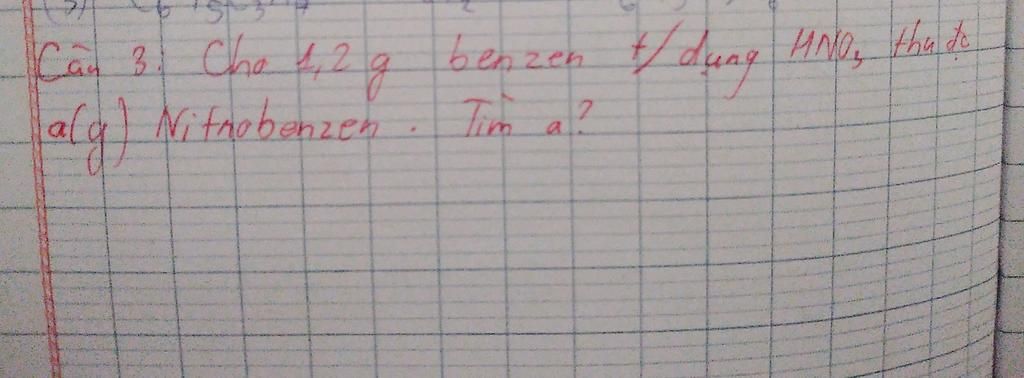 Câu 3: Cho 1,2 g benzen t/dụng HNO₃ thu đc
a(g) Nitrobenzen. Tìm a?